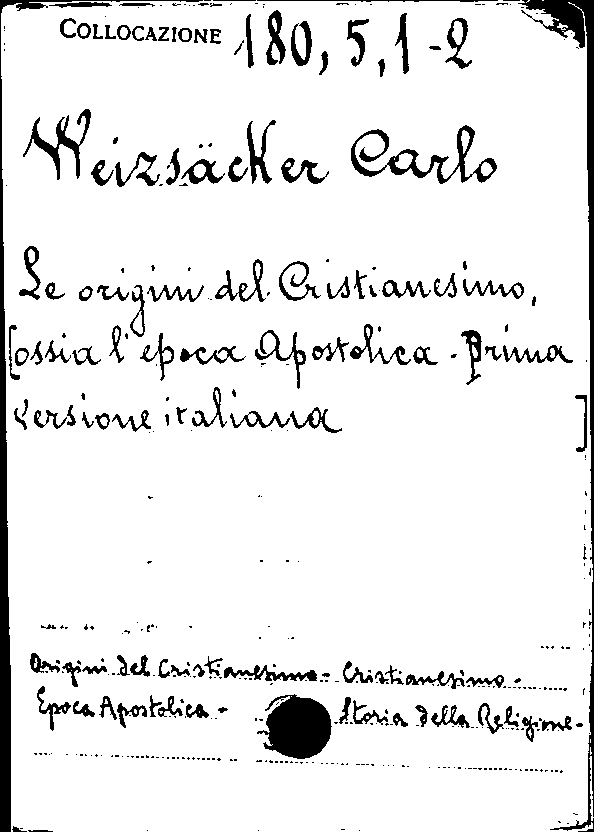 COLLOCAZIONE 180, 5, 1-2
Weizsäcker Carlo
Le origini del Cristianesimo,
[ossia l'epoca Apostolica - Prima
versione italiana ]
Origini del Cristianesimo - Cristianesimo -
Epoca Apostolica - Storia della Religione -